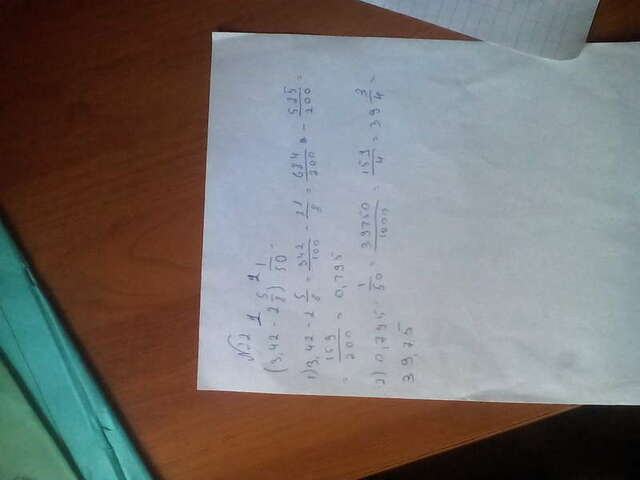 №2
(3,42 - 2 5/8) : 1/50 =
1) 3,42 - 2 5/8 = 342/100 - 21/8 = 684/200 - 525/200 =
= 159/200 = 0,795
2) 0,795 : 1/50 = 39750/1000 = 159/4 = 39 3/4 =
39,75